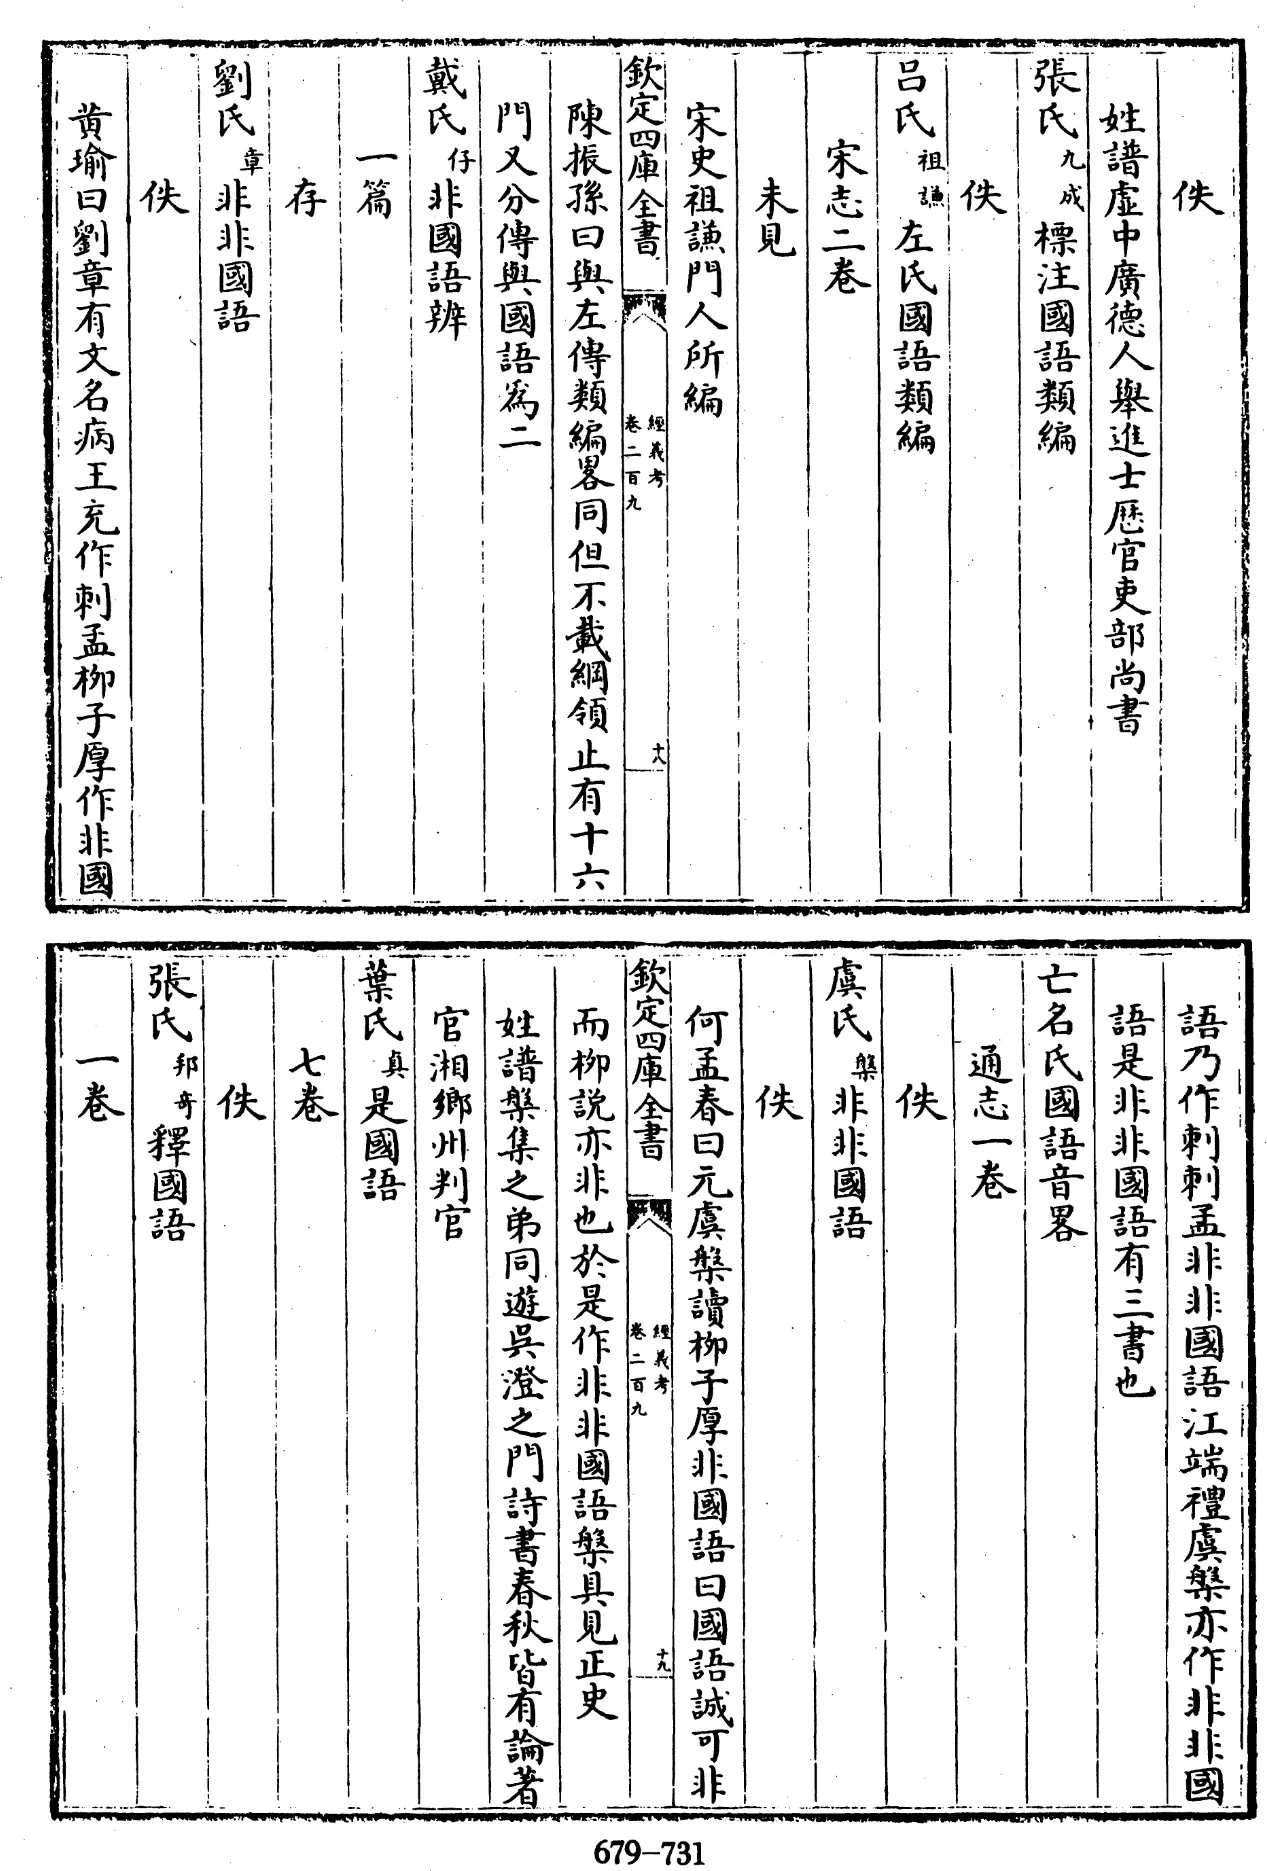 佚
姓譜虛中廣德人舉進士厯官吏部尚書
張氏九成標注國語類編
佚
呂氏祖謙左氏國語類編
宋志二卷
未見
宋史祖謙門人所編
欽定四庫全書 經義考卷二百九 十八
陳振孫曰與左傳類編畧同但不載綱領止有十六
門又分傳與國語爲二
戴氏仔非國語辨
一篇
存
劉氏章非非國語
佚
黄瑜曰劉章有文名病王充作刺孟柳子厚作非國
語乃作刺刺孟非非國語江端禮虞槃亦作非非國
語是非非國語有三書也
亡名氏國語音畧
通志一卷
佚
虞氏槃非非國語
佚
何孟春曰元虞槃讀柳子厚非國語曰國語誠可非
欽定四庫全書 經義考卷二百九 十九
而柳説亦非也於是作非非國語槃具見正史
姓譜槃集之弟同遊吳澄之門詩書春秋皆有論著
官湘鄉州判官
葉氏真是國語
七卷
佚
張氏邦奇釋國語
一卷
679–731